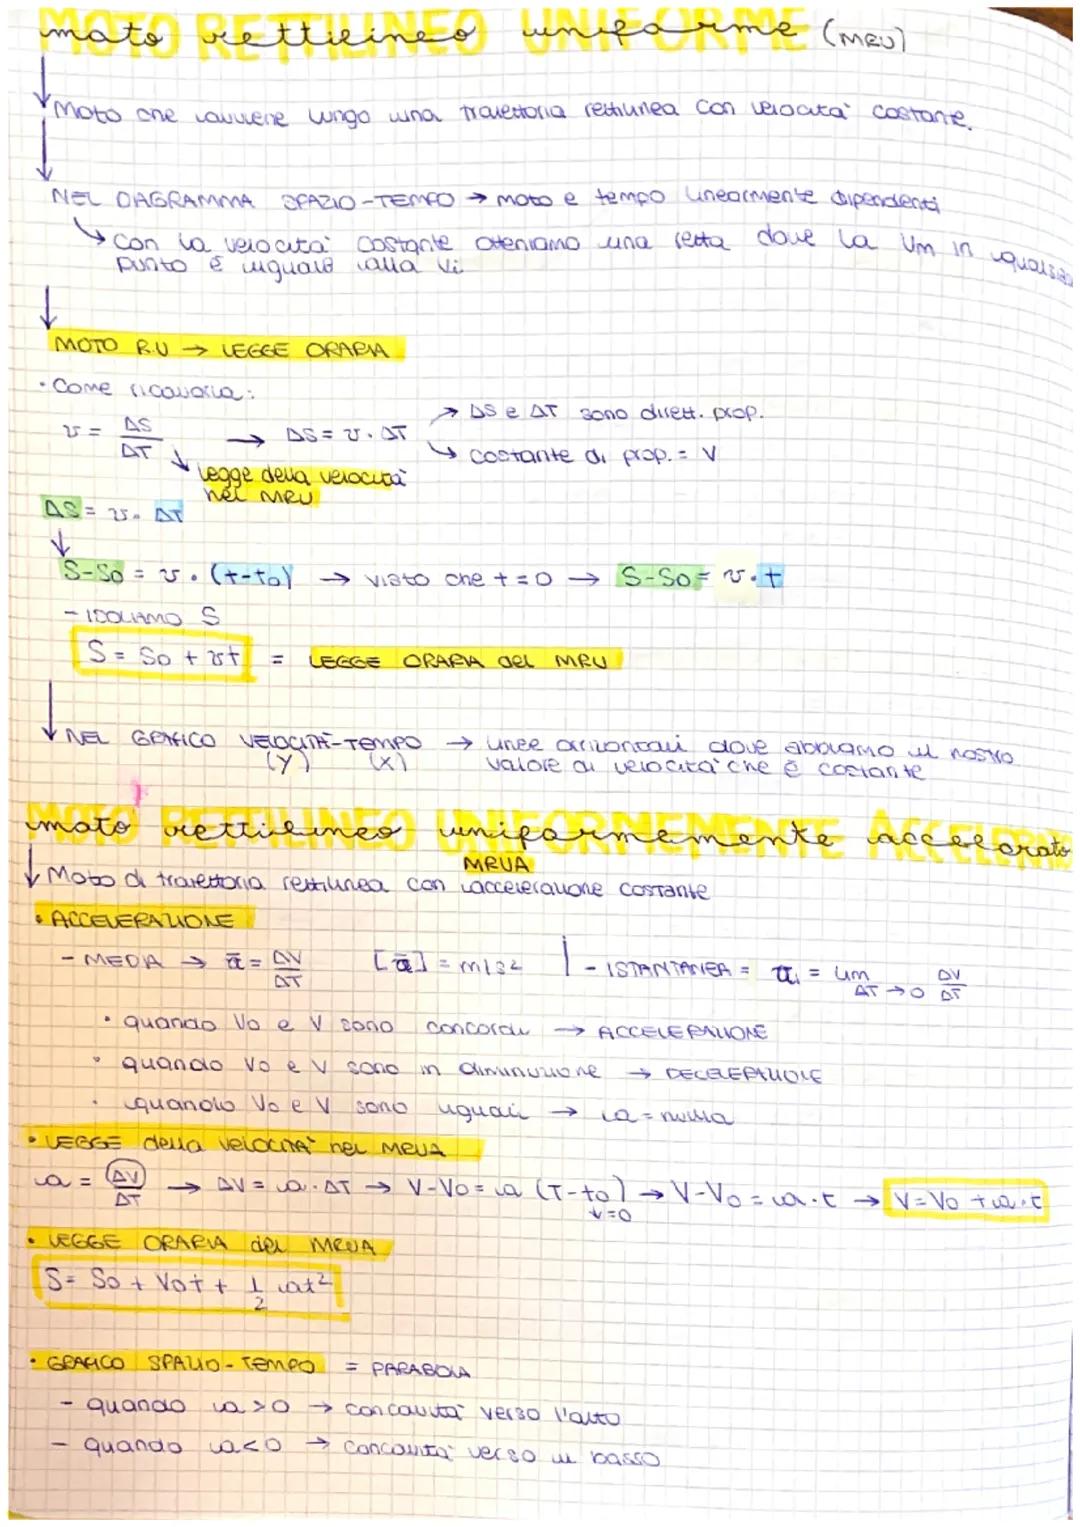 moto rettilineo uniforme (MRU)
Moto che avviene lungo una traiettoria rettilinea con velocità costante.
NEL DIAGRAMMA SPAZIO-TEMPO → moto e tempo linearmente dipendenti
↳ con la velocità costante otteniamo una retta dove la Vm in qualsiasi
punto è uguale alla Vi
MOTO R.U → LEGGE ORARIA
• Come ricavarla:
v = ΔS/ΔT → ΔS = v · ΔT → ΔS e ΔT sono dirett. prop.
↳ costante di prop. = V
↓ legge della velocità
nel MRU
ΔS = v · ΔT
↓
S-S0 = v · (t-t0) → visto che t=0 → S-S0 = v · t
- ISOLIAMO S
S = S0 + vt = LEGGE ORARIA del MRU
NEL GRAFICO VELOCITÀ-TEMPO → linee orizzontali dove abbiamo il nostro
(Y) (X) valore di velocità che è costante
moto rettilineo uniformemente accelerato
MRUA
↓ Moto di traiettoria rettilinea con accelerazione costante
• ACCELERAZIONE
- MEDIA → ā = ΔV/ΔT [ā] = m/s2 | - ISTANTANEA = ai = lim ΔT→0 ΔV/ΔT
• quando V0 e V sono concordi → ACCELERAZIONE
• quando V0 e V sono in diminuzione → DECELERAZIOE
• quando V0 e V sono uguali → a = nulla
• LEGGE della velocità nel MRUA
a = ΔV/ΔT → ΔV = a · ΔT → V-V0 = a (T-t0) → V-V0 = a · t → V = V0 + a · t
↓=0
• LEGGE ORARIA del MRUA
S = S0 + V0t + 1/2 at²
• GRAFICO SPAZIO-TEMPO = PARABOLA
- quando a > 0 → concavità verso l'alto
- quando a < 0 → concavità verso il basso